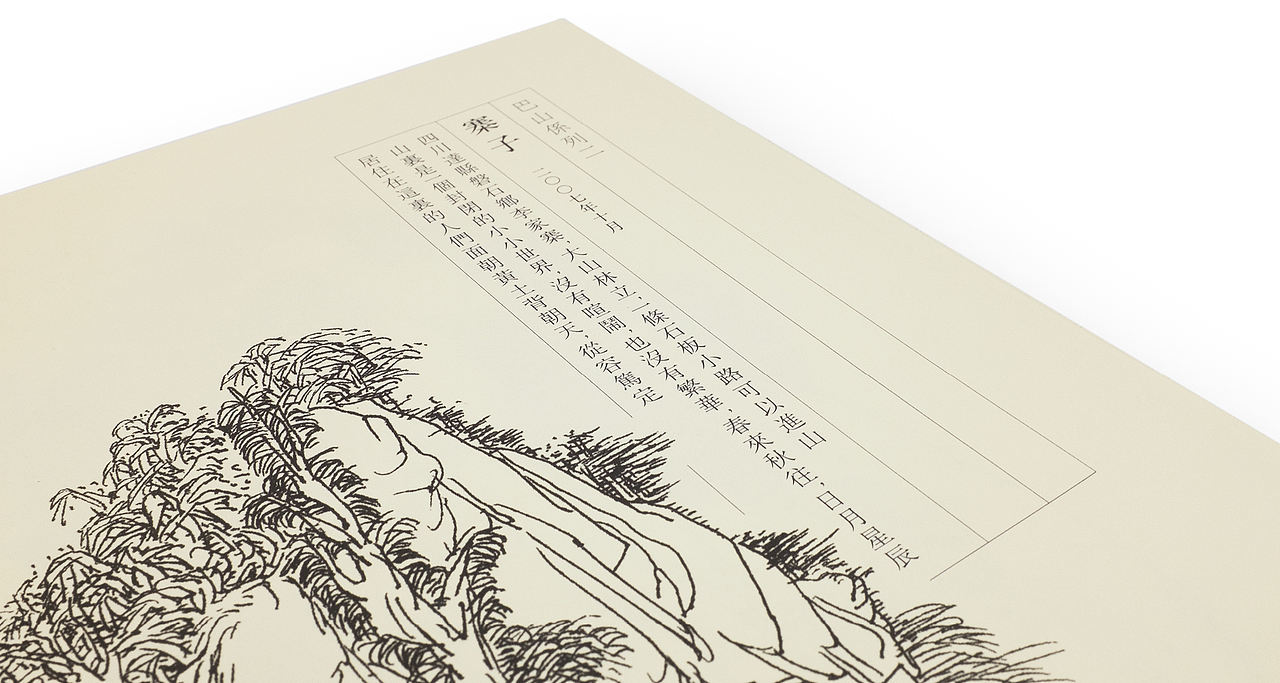 巴山係列二
寨子 二〇〇七年十月
四川達縣磐石鄉李家寨，大山林立，一條石板小路可以進山
山裏是一個封閉的小小世界，沒有喧鬧，也沒有繁華，春來秋往，日月星辰
居住在這裏的人們面朝黃土背朝天，從容篤定